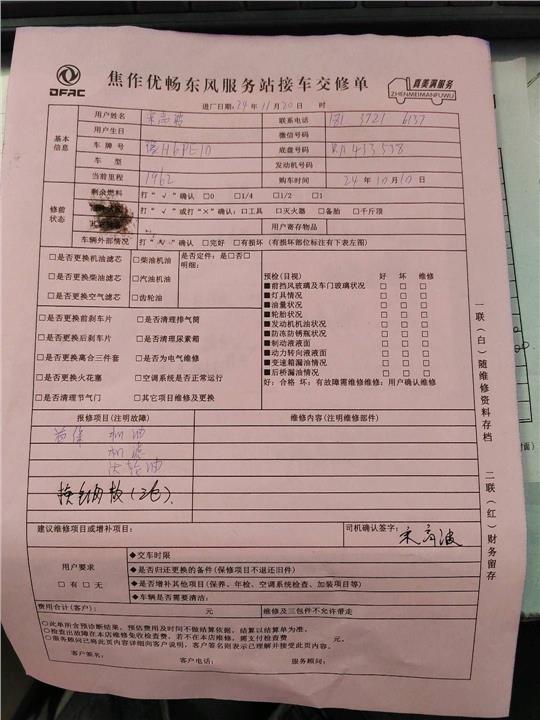 DFAC
焦作优畅东风服务站接车交修单
真美满服务
ZHENMEIMANFUWU
进厂日期: 24年11月20日 时
基本信息
用户姓名 联系电话 181 3721 6137
用户生日 微信号码
车牌号 底盘号码
车型 发动机号码
当前里程 1962 购车时间 24年10月10日
修前状态
剩余燃料 打“√”确认 □0 □1/4 □1/2 □1
打“√”或打“×”确认:□工具 □灭火器 □备胎 □千斤顶
用户寄存物品
车辆外部情况 打“√”确认 □完好 □有损坏(有损部位标注有下表左图)
□是否更换机油滤芯 □柴油机油 是否定件:是□否□
□是否更换柴油滤芯 □汽油机油 明细:
□是否更换空气滤芯 □齿轮油
预检(目视) 好 坏 维修
■前挡风玻璃及车门玻璃状况 □ □ □
■灯具情况 □ □ □
■油量状况 □ □ □
■轮胎状况 □ □ □
■发动机机油状况 □ □ □
■防冻防锈瓶状况 □ □ □
■制动液液面 □ □ □
■动力转向液液面 □ □ □
■变速箱漏油情况 □ □ □
■后桥漏油情况 □ □ □
好:合格 坏:有故障需维修维修:用户确认维修
□是否更换前刹车片 □是否清理排气筒
□是否更换后刹车片 □是否清理尿素箱
□是否更换离合三件套 □是否为电气维修
□是否更换火花塞 □空调系统是否正常运行
□是否清理节气门 □其它项目维修及更换
报修项目(注明故障) 维修内容(注明维修部件)
首保 机油
机滤
齿轮油
建议维修项目或增补项目: 司机确认签字:
用户要求
□有□无
◆交车时限
◆是否归还更换的备件(保修项目不退还旧件)
◆是否增补其他项目(保养、年检、空调系统检查、加装项目等)
◆车辆是否需要清洁:
费用合计(客户): 元 维修及三包件不允许带走
○此单所含预诊断结果,预估费用及时间不做结算依据,结算以结算单为准。
○检查出故障在本店维修免收检查费,若不在本店维修,需支付检查费 元。
○服务顾问已将此页内容详细向客户说明,客户签名则表示已理解并接受此页内容。
客户签名: 客户电话: 服务顾问:
一联(白)随维修资料存档
二联(红)财务留存